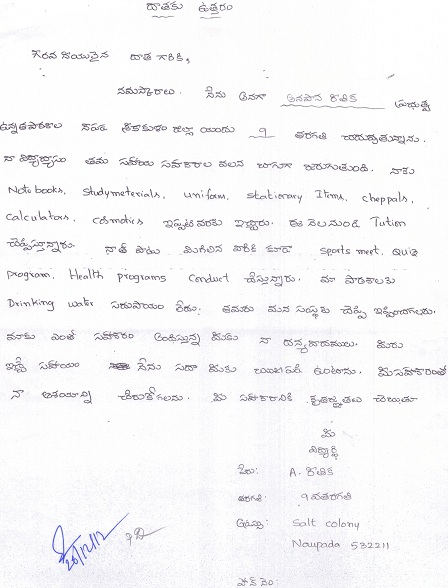 దాతకు ఉత్తరం
గౌరవనీయులైన దాత గారికి,
నమస్కారాలు. నేను అనగా అనపాన రితిక ప్రభుత్వ
ఉన్నత పాఠశాల నౌపడ శ్రీకాకుళం జిల్లా యందు 9 తరగతి చదువుతున్నాను.
నా విద్యాభ్యాసం తమ సహాయ సహకారాల వలన బాగుగా జరుగుతుంది. నాకు
Note books, Studymeterials, unifam, stationary Items, cheppals,
Calculators, cosmotics ఇప్పటి వరకు ఇచ్చారు. ఈ నెల నుండి Tution
చెప్పిస్తున్నారు. నాతో పాటు మిగిలిన వారికి కూడా sports meet, Quiz
program, Health programs conduct చేస్తున్నారు. మా పాఠశాలకు
Drinking water సదుపాయం లేదు. తమరు మన సంస్థకు చెప్పి ఇప్పించగలరు.
మాకు ఎంతో సహకారం అందిస్తున్న మీకు నా ధన్యవాదములు. మీరు
ఇచ్చే సహాయం నేను సదా మీకు ఉంటాను. మీ సహకారంతో
నా ఆశయాన్ని చేరుకోగలను. మీ సహకారానికి కృతజ్ఞతలు చెబుతూ
మీ
విద్యార్థి
పేరు: A. రితిక
తరగతి: 9 వ తరగతి
గ్రామం: Salt colony
Naupada 532211
26/12/12